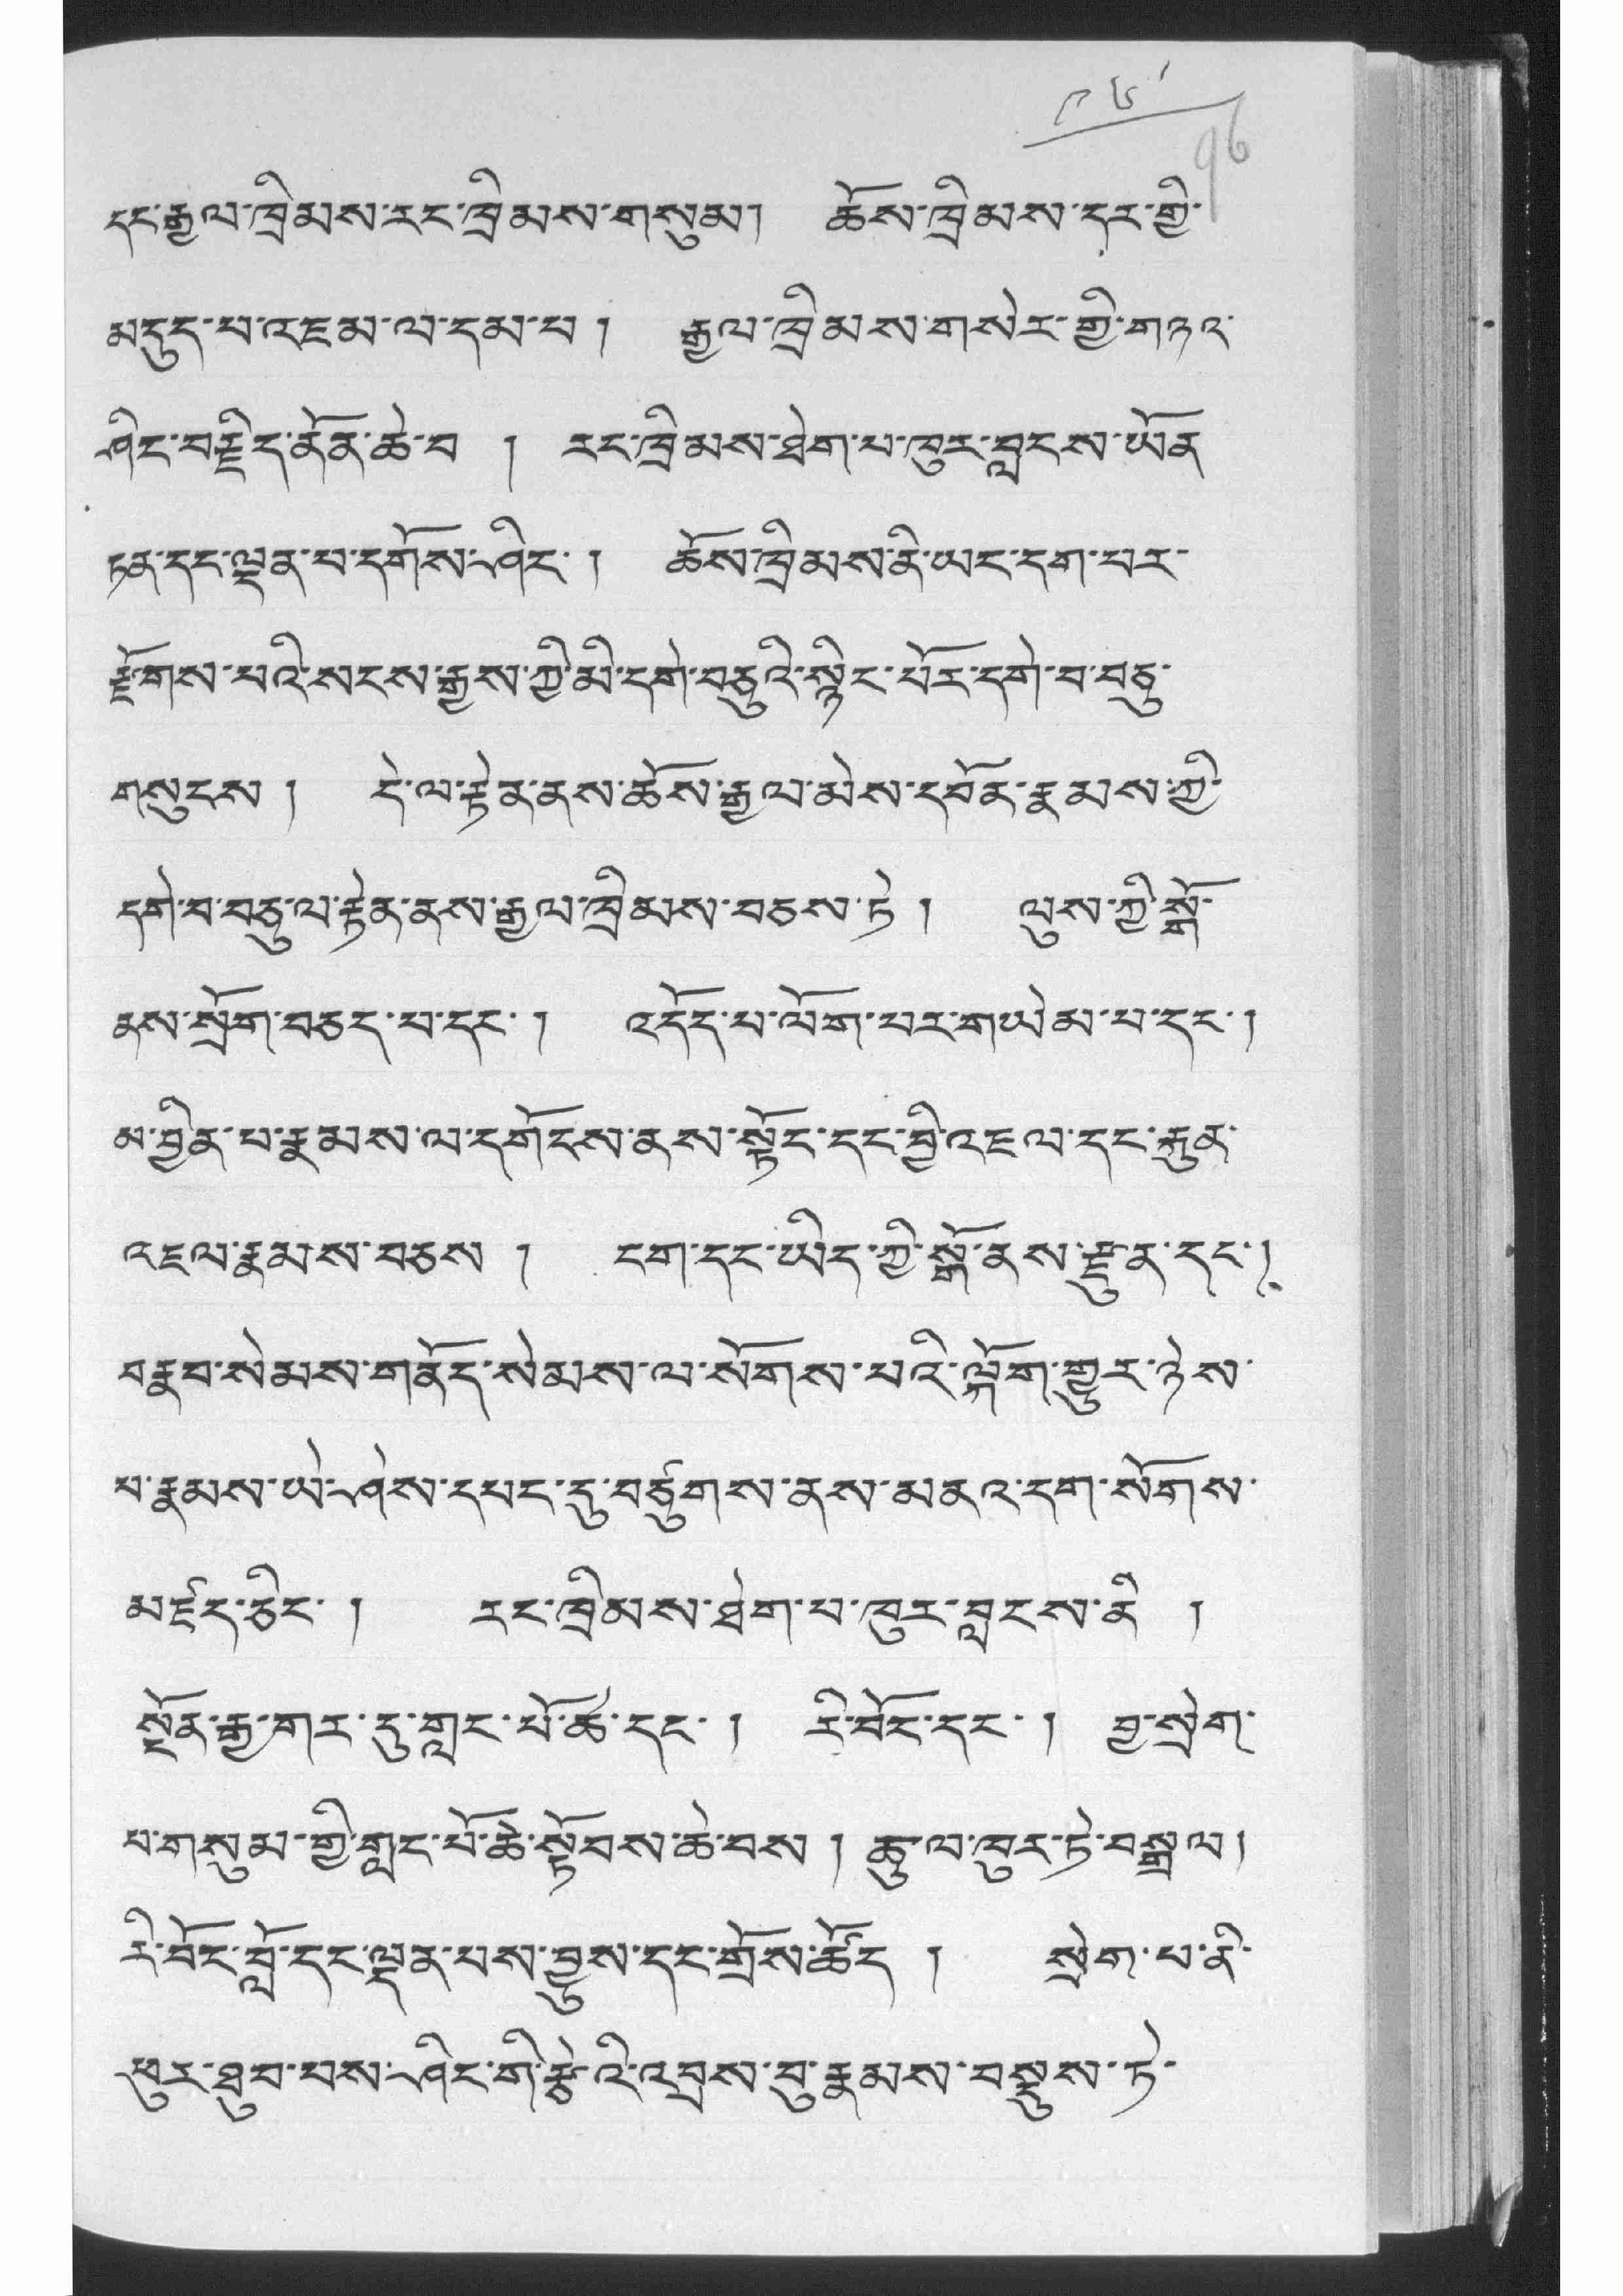 ༩༦
96
དང་རྒྱལ་ཁྲིམས་རང་ཁྲིམས་གསུམ། ཆོས་ཁྲིམས་དར་གྱི་
མདུད་པ་འཇམ་ལ་དམ་པ། རྒྱལ་ཁྲིམས་གསེར་གྱི་གཉའ་
ཤིང་བརྗིད་ནོན་ཆེ་བ། རང་ཁྲིམས་ཐེག་པ་ཁུར་བླངས་ཡོན
ཏན་དང་ལྡན་པ་དགོས་ཤིང་། ཆོས་ཁྲིམས་ནི་ཡང་དག་པར་
རྫོགས་པའི་སངས་རྒྱས་ཀྱི་མི་དགེ་བཅུའི་སྙིང་པོར་དགེ་བ་བཅུ་
གསུངས། དེ་ལ་རྟེན་ནས་ཆོས་རྒྱལ་མེས་དབོན་རྣམས་ཀྱི་
དགེ་བ་བཅུ་ལ་རྟེན་ནས་རྒྱལ་ཁྲིམས་བཅས་ཏེ། ལུས་ཀྱི་སྒོ་
ནས་སྲོག་བཅད་པ་དང་། འདོད་པ་ལོག་པར་གཡེམ་པ་དང་།
མ་བྱིན་པ་རྣམས་ལ་དགོངས་ནས་སྟོང་དང་བྱི་འཇལ་དང་རྐུན་
འཇལ་རྣམས་བཅས། ངག་དང་ཡིད་ཀྱི་སྒོ་ནས་རྫུན་དང་།
བརྣབ་སེམས་གནོད་སེམས་ལ་སོགས་པའི་ལྐོག་གྱུར་ཉེས་
པ་རྣམས་ཡེ་ཤེས་དཔང་དུ་བཙུགས་ནས་མནའ་དག་སོགས་
མཛད་ཅིང་། རང་ཁྲིམས་ཐེག་པ་ཁུར་བླངས་ནི།
སྔོན་རྒྱ་གར་དུ་གླང་པོ་ཆེ་དང་། རི་བོང་དང་། བྱ་སྲེག་
པ་གསུམ་གྱི་གླང་པོ་ཆེ་སྟོབས་ཆེ་བས། ཆུ་ལ་ཁུར་ཏེ་བསྒྲལ།
རི་བོང་བློ་དང་ལྡན་པས་བྱུས་དང་གྲོས་ཚོད། སྲེག་པ་ནི་
ཕུར་ཐུབ་པས་ཤིང་གི་རྩེའི་འབྲས་བུ་རྣམས་བསྡུས་ཏེ་